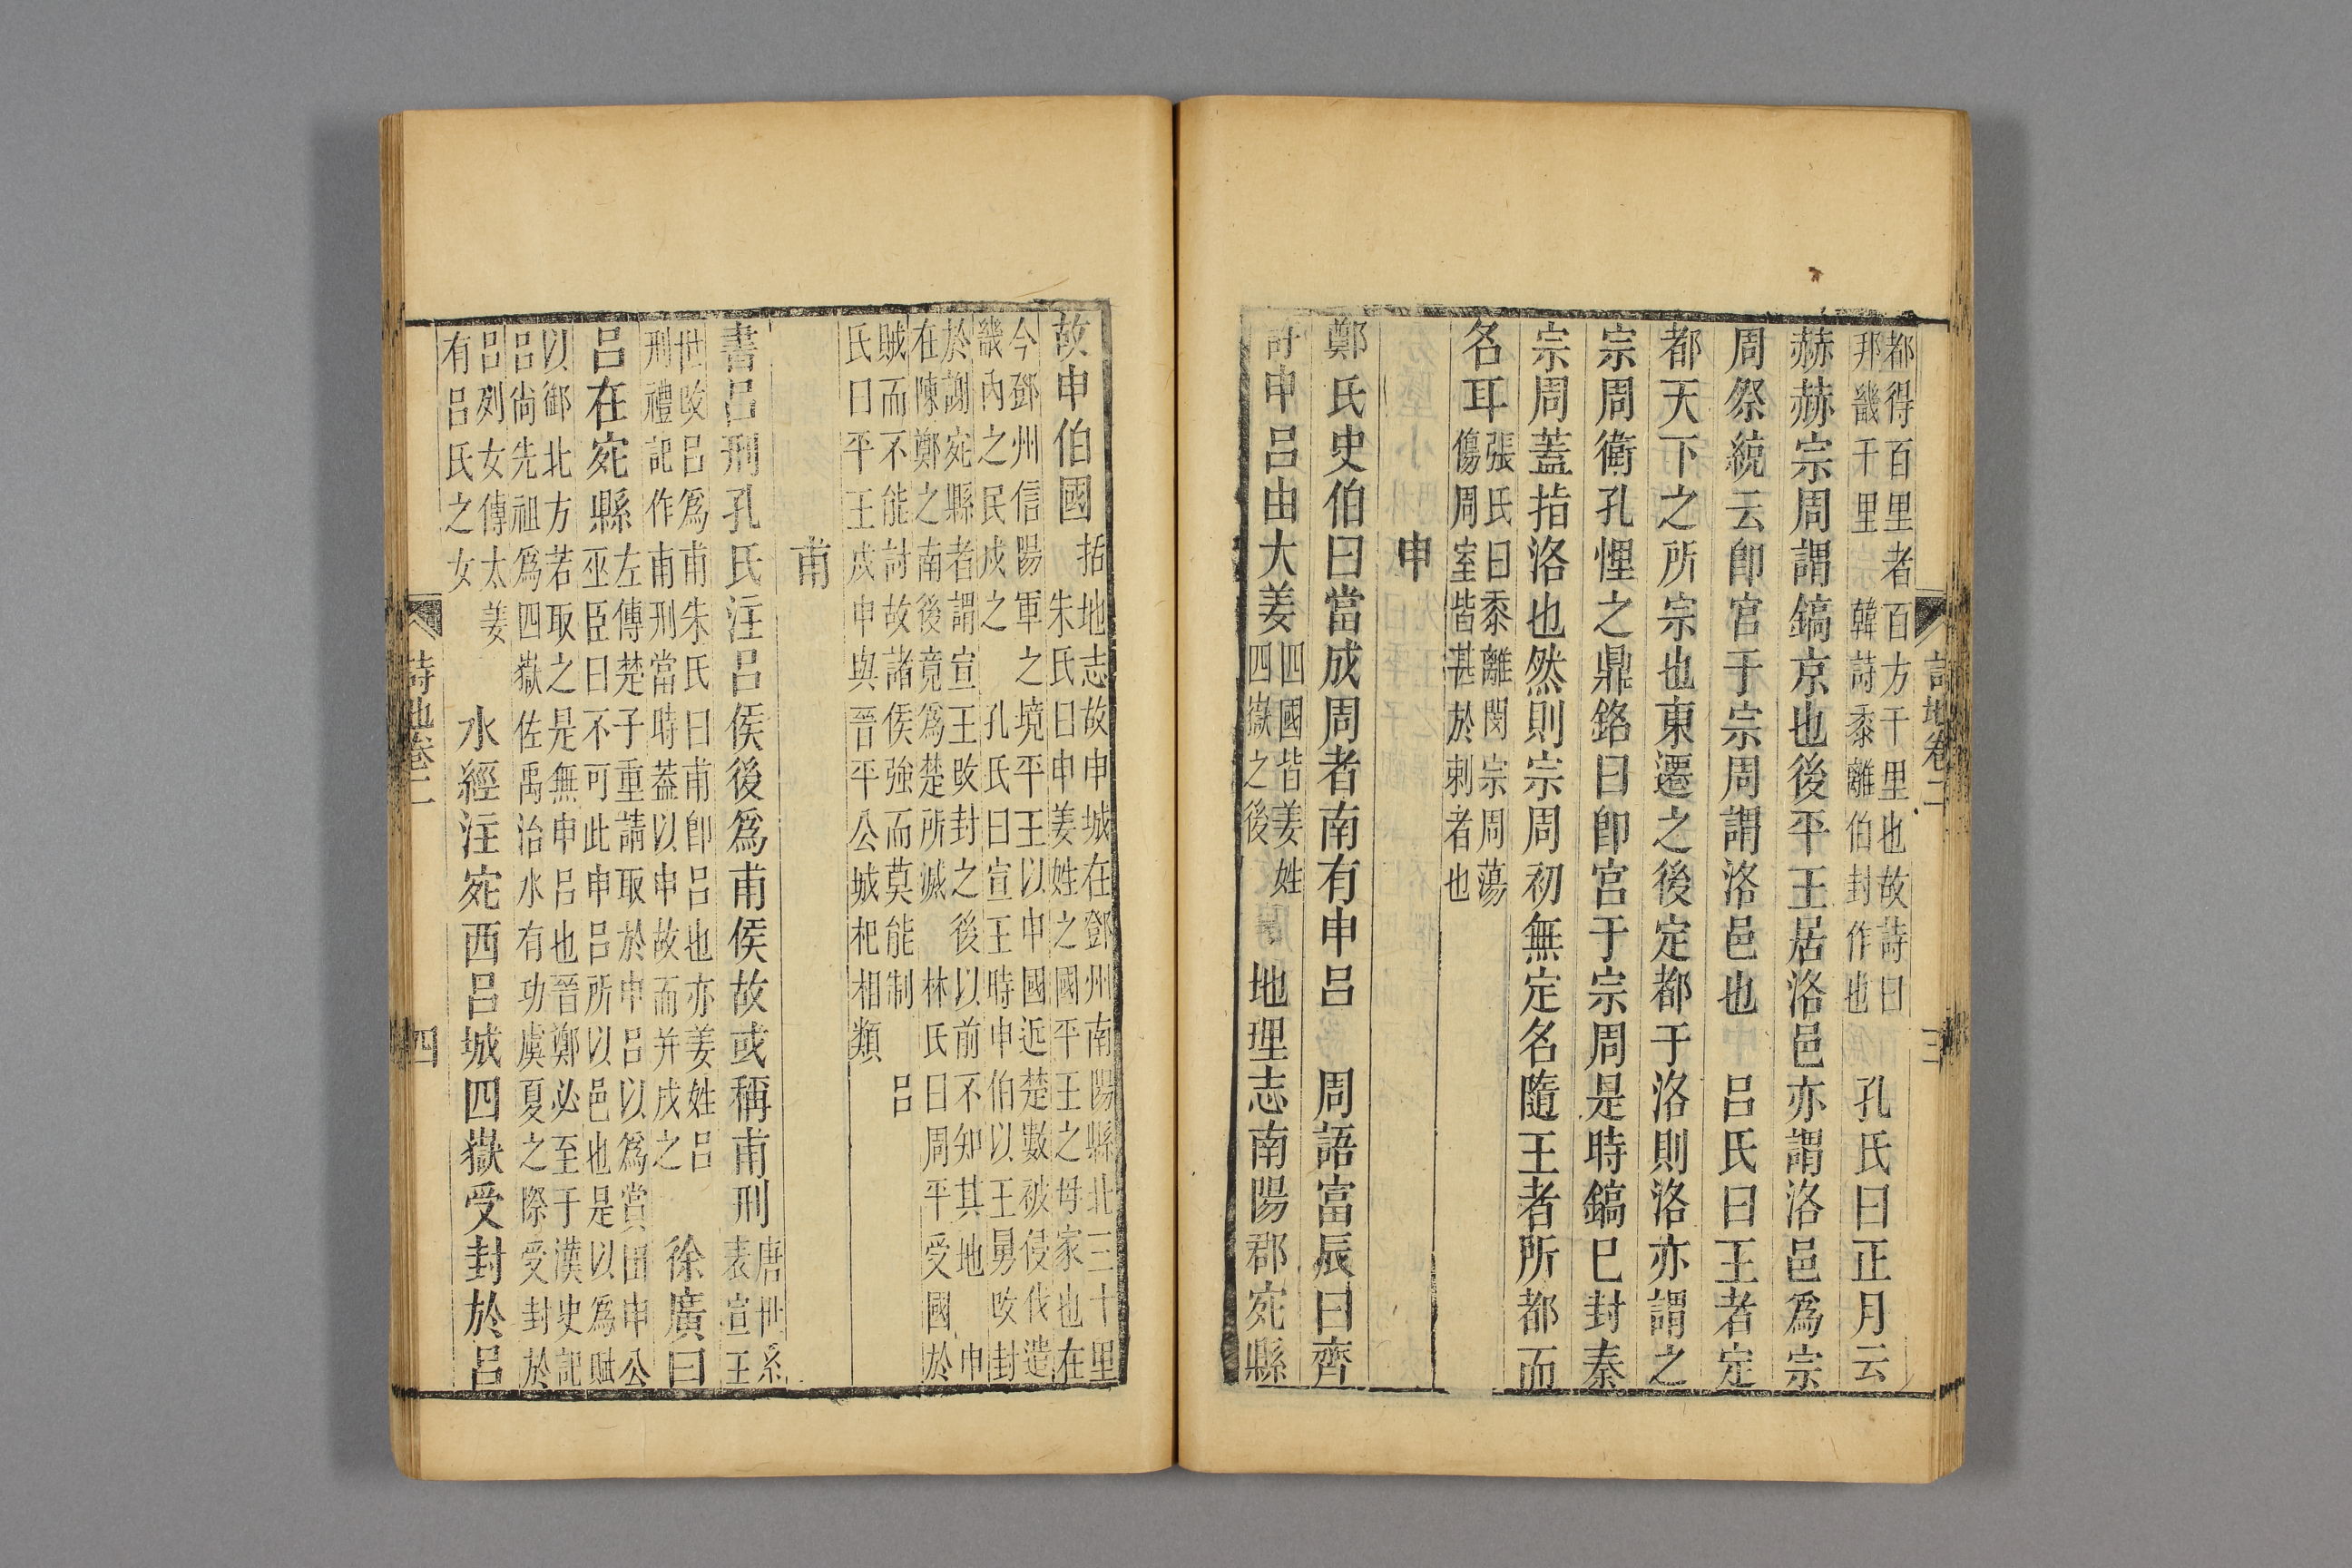 都得百里者百方千里也故詩曰
邦畿千里韓詩黍離伯封作也
孔氏曰正月云
赫赫宗周謂鎬京也後平王居洛邑亦謂洛邑爲宗
周祭統云卽宮于宗周謂洛邑也
呂氏曰王者定
都天下之所宗也東遷之後定都于洛則洛亦謂之
宗周衛孔悝之鼎銘曰卽宮于宗周是時鎬已封秦
宗周蓋指洛也然則宗周初無定名隨王者所都而
名耳
張氏曰黍離閔宗周蕩
傷周室皆甚於刺者也
申
鄭氏史伯曰當成周者南有申呂
周語富辰曰齊
許申呂由大姜
四國皆姜姓
四嶽之後
地理志南陽郡宛縣
詩地卷二
三
故申伯國
括地志故申城在鄧州南陽縣北三十里
朱氏曰申姜姓之國平王之母家也在
今鄧州信陽軍之境平王以申國近楚數被侵伐遣
畿內之民戍之
孔氏曰宣王時申伯以王舅攺封
於謝宛縣者謂宣王攺封之後以前不知其地
申
在陳鄭之南後竟爲楚所滅
林氏曰周平受國於
賊而不能討故諸侯強而莫能制
呂
氏曰平王戍申與晉平公城杞相類
甫
書呂刑孔氏注呂侯後爲甫侯故或稱甫刑
唐世系
表宣王
世攺呂爲甫朱氏曰甫卽呂也亦姜姓呂
刑禮記作甫刑當時蓋以申故而并戍之
徐廣曰
呂在宛縣
左傳楚子重請取於申呂以爲賞田申公
巫臣曰不可此申呂所以邑也是以爲賦
以御北方若取之是無申呂也晉鄭必至于漢史記
呂尙先祖爲四嶽佐禹治水有功虞夏之際受封於
呂列女傳太姜
有呂氏之女
水經注宛西呂城四嶽受封於呂
詩地卷二
四